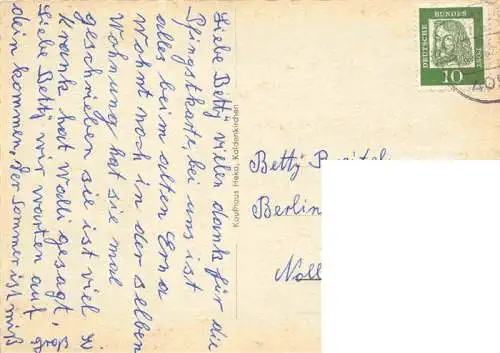 Liebe Betty vielen dank für die
Pfingstkarte, bei uns ist
alles beim alten Erna
wohnt noch in der selben
Wohnung hat sie mal
geschrieben sie ist viel
Krank hat Walli gesagt,
Liebe Betty wir warten auf
dein kommen, der Sommer ist miß
groß
Kaufhaus Heka, Kaldenkirchen
DEUTSCHE BUNDESPOST
10
Betty
Berlin
Noll